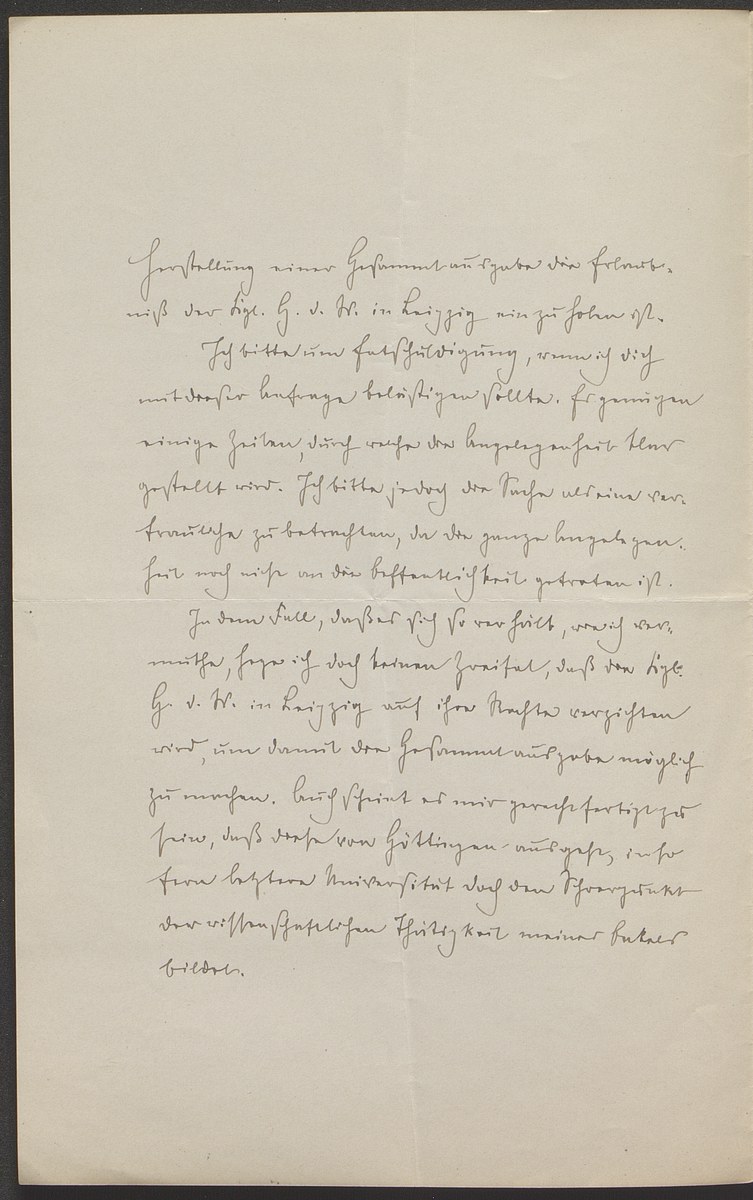 Herstellung einer Gesammtausgabe die Erlaub-
niß der Kgl. G. d. W. in Leipzig einzuholen ist.
Ich bitte um Entschuldigung, wenn ich Dich
mit dieser Anfrage belästigen sollte. Es genügen
einige Zeilen, durch welche die Angelegenheit klar
gestellt wird. Ich bitte jedoch die Sache als eine ver-
trauliche zu betrachten, da die ganze Angelegen-
heit noch nicht an die Oeffentlichkeit getreten ist.
In dem Fall, daß es sich so verhält, wie ich ver-
muthe, hege ich doch keinen Zweifel, daß die Kgl.
G. d. W. in Leipzig auf ihre Rechte verzichten
wird, um damit die Gesammtausgabe möglich
zu machen. Auch scheint es mir gerechtfertigt zu
sein, daß diese von Göttingen ausgeht, inso
fern letztere Universität doch den Schwerpunkt
der wissenschaftlichen Thätigkeit meines Onkels
bildet.